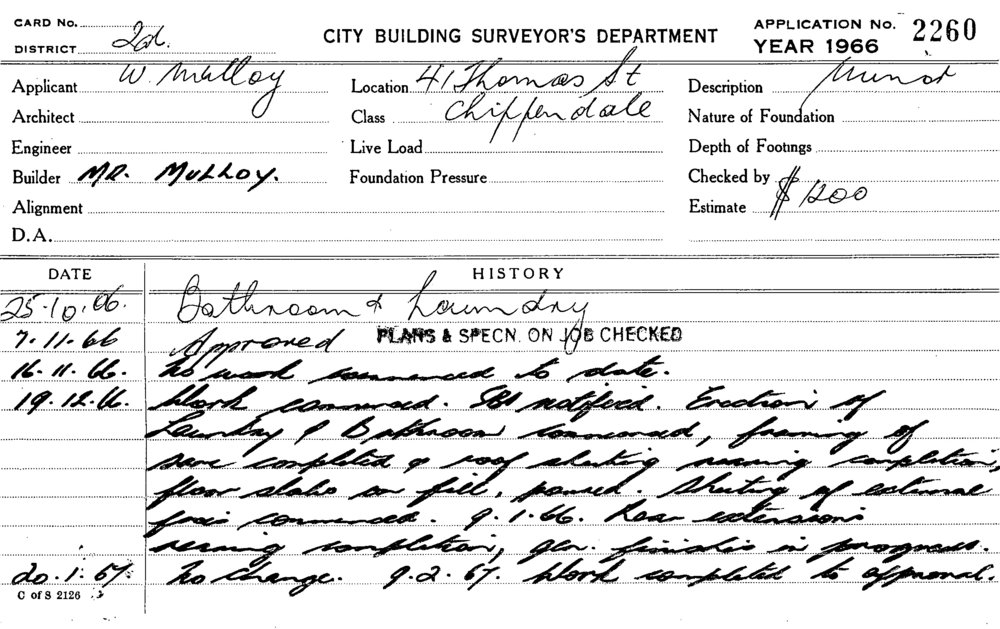 CARD No.
DISTRICT 2d.
CITY BUILDING SURVEYOR'S DEPARTMENT
APPLICATION No. 2260
YEAR 1966
Applicant W. Mulloy
Location 41 Thomas St
Description Minor
Architect
Class Chippendale
Nature of Foundation
Engineer
Live Load
Depth of Footings
Builder MR. MULLOY.
Foundation Pressure
Checked by
Alignment
Estimate $1200
D.A.
DATE HISTORY
25.10.66. Bathroom & Laundry
7.11.66 Approved PLANS & SPECN. ON JOB CHECKED
16.11.66. No work commenced to date.
19.12.66. Work commenced. notified. Erection of
Laundry & Bathroom commenced, framing of
same completed & roof sheeting nearing completion,
floor slabs on fill, poured. Sheeting of external
faces commenced. 9.1.66. Rear extensions
nearing completion, gen. finishes in progress.
20.1.67. No change. 9.2.67. Work completed to approval.
C of S 2126